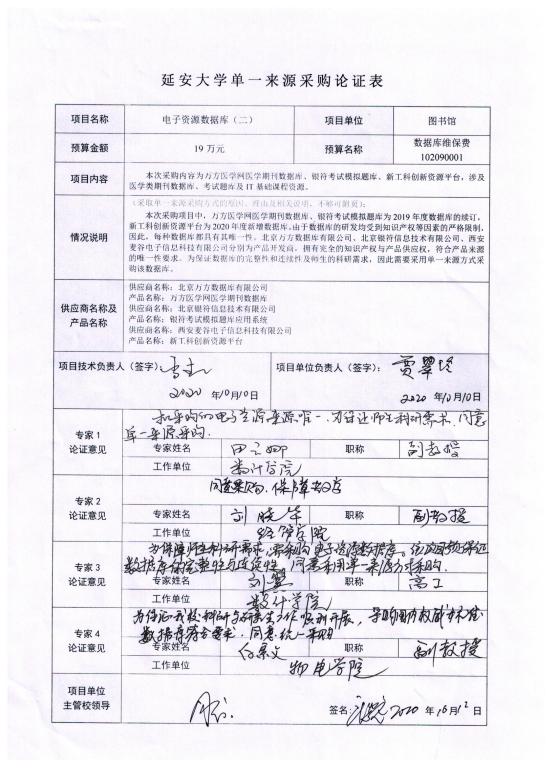 延安大学单一来源采购论证表
项目名称 电子资源数据库（二） 项目单位 图书馆
预算金额 19 万元 预算名称 数据库维保费
102090001
项目内容 本次采购内容为万方医学网医学期刊数据库、银符考试模拟题库、新工科创新资源平台，涉及
医学类期刊数据库、考试题库及 IT 基础课程资源。
（采取单一来源采购方式的原因、理由及相关说明，不够可附页）：
本次采购项目中，万方医学网医学期刊数据库、银符考试模拟题库为 2019 年度数据库的续订，
新工科创新资源平台为 2020 年度新增数据库。由于数据库的研发均受到知识产权等因素的严格限制，
情况说明 因此，每种数据库都具有其唯一性。北京万方数据有限公司、北京银符信息技术有限公司、西安
麦谷电子信息科技有限公司分别为产品开发商，拥有完全的知识产权与产品供应权，符合产品来源
的唯一性要求。为保证数据库的完整性和连续性及师生的科研需求，因此需要采用单一来源方式采
购该数据库。
供应商名称及
产品名称
供应商名称：北京万方数据有限公司
产品名称：万方医学网医学期刊数据库
供应商名称：北京银符信息技术有限公司
产品名称：银符考试模拟题库应用系统
供应商名称：西安麦谷电子信息科技有限公司
产品名称：新工科创新资源平台
项目技术负责人（签字）： 项目单位负责人（签字）：
2020 年10月10日 2020 年10月10日
专家 1
论证意见
同意
单一来源采购.
专家姓名 职称 副教授
工作单位
专家 2
论证意见
同意采购，保障教学
专家姓名 刘晓华 职称 副教授
工作单位
专家 3
论证意见
数据库的完整性与连续性，同意采用单一来源方式采购.
专家姓名 刘 职称 高工
工作单位 数计学院
专家 4
论证意见
同意统一采购
专家姓名 职称 副教授
工作单位 物电学院
项目单位
主管校领导
签名： 2020 年 10月12日